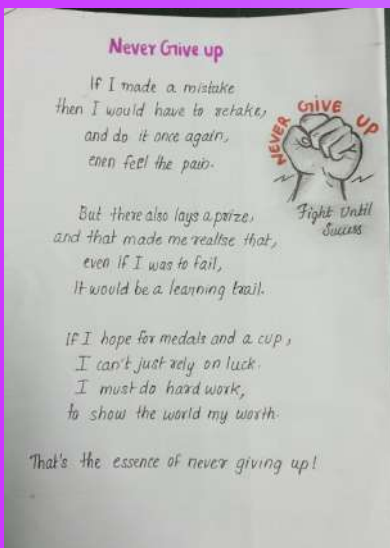 Never Give up
If I made a mistake
then I would have to retake,
and do it once again,
even feel the pain.
NEVER GIVE UP
Fight Until
Success
But there also lays a prize,
and that made me realise that,
even if I was to fail,
It would be a learning trail.
If I hope for medals and a cup,
I can't just rely on luck.
I must do hard work,
to show the world my worth.
That's the essence of never giving up!